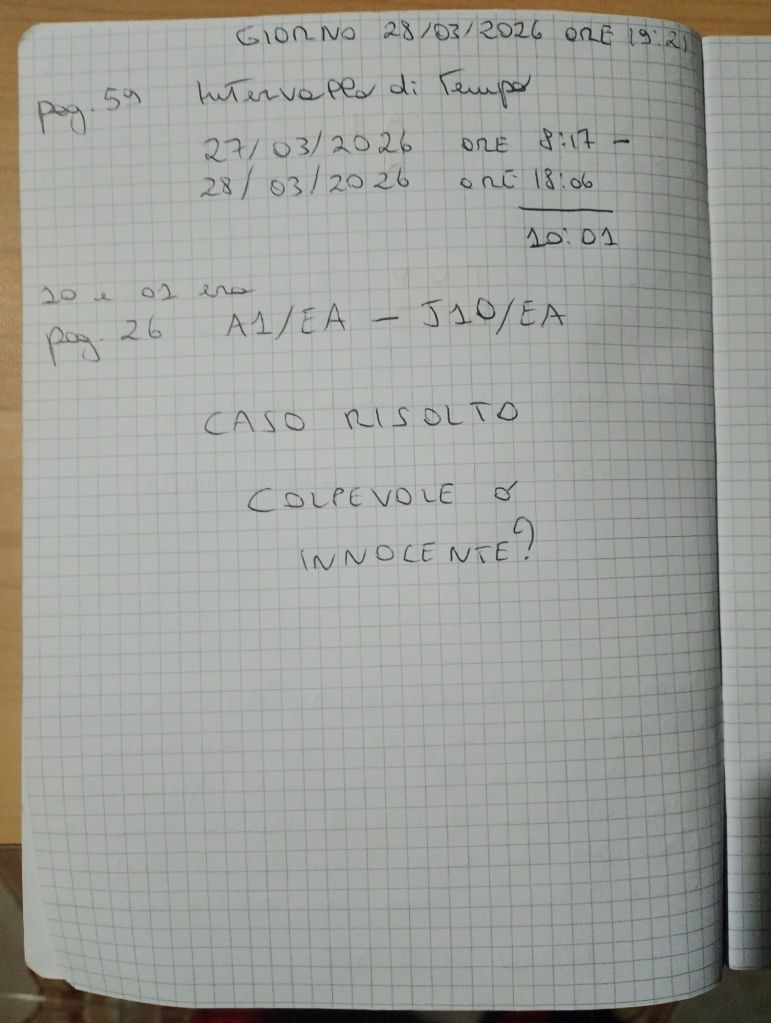 GIORNO 28/03/2026 ORE 19:21
pag. 59 Intervallo di Tempo
27/03/2026 ORE 8:17 -
28/03/2026 ORE 18:06
10:01
10 e 01 ero
pag. 26 A1/EA - J10/EA
CASO RISOLTO
COLPEVOLE o
INNOCENTE?